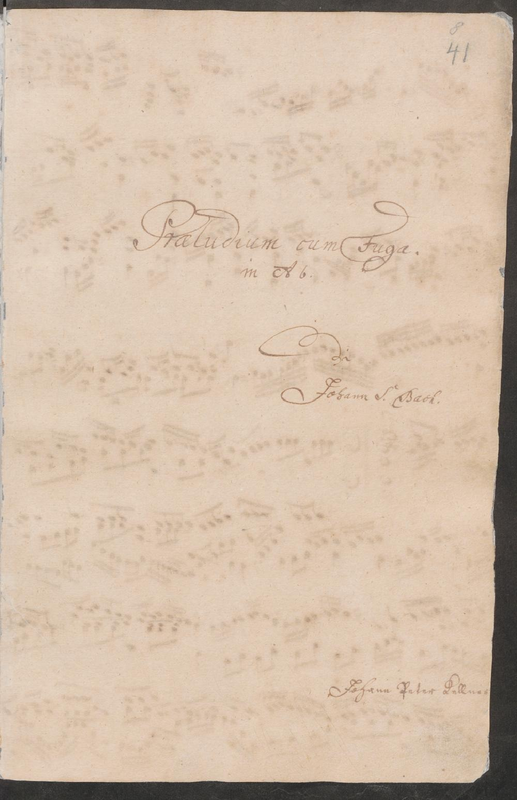 8
41
Præludium cum Fuga.
in A b.
di
Johann S. Bach.
Johann Peter Kellner